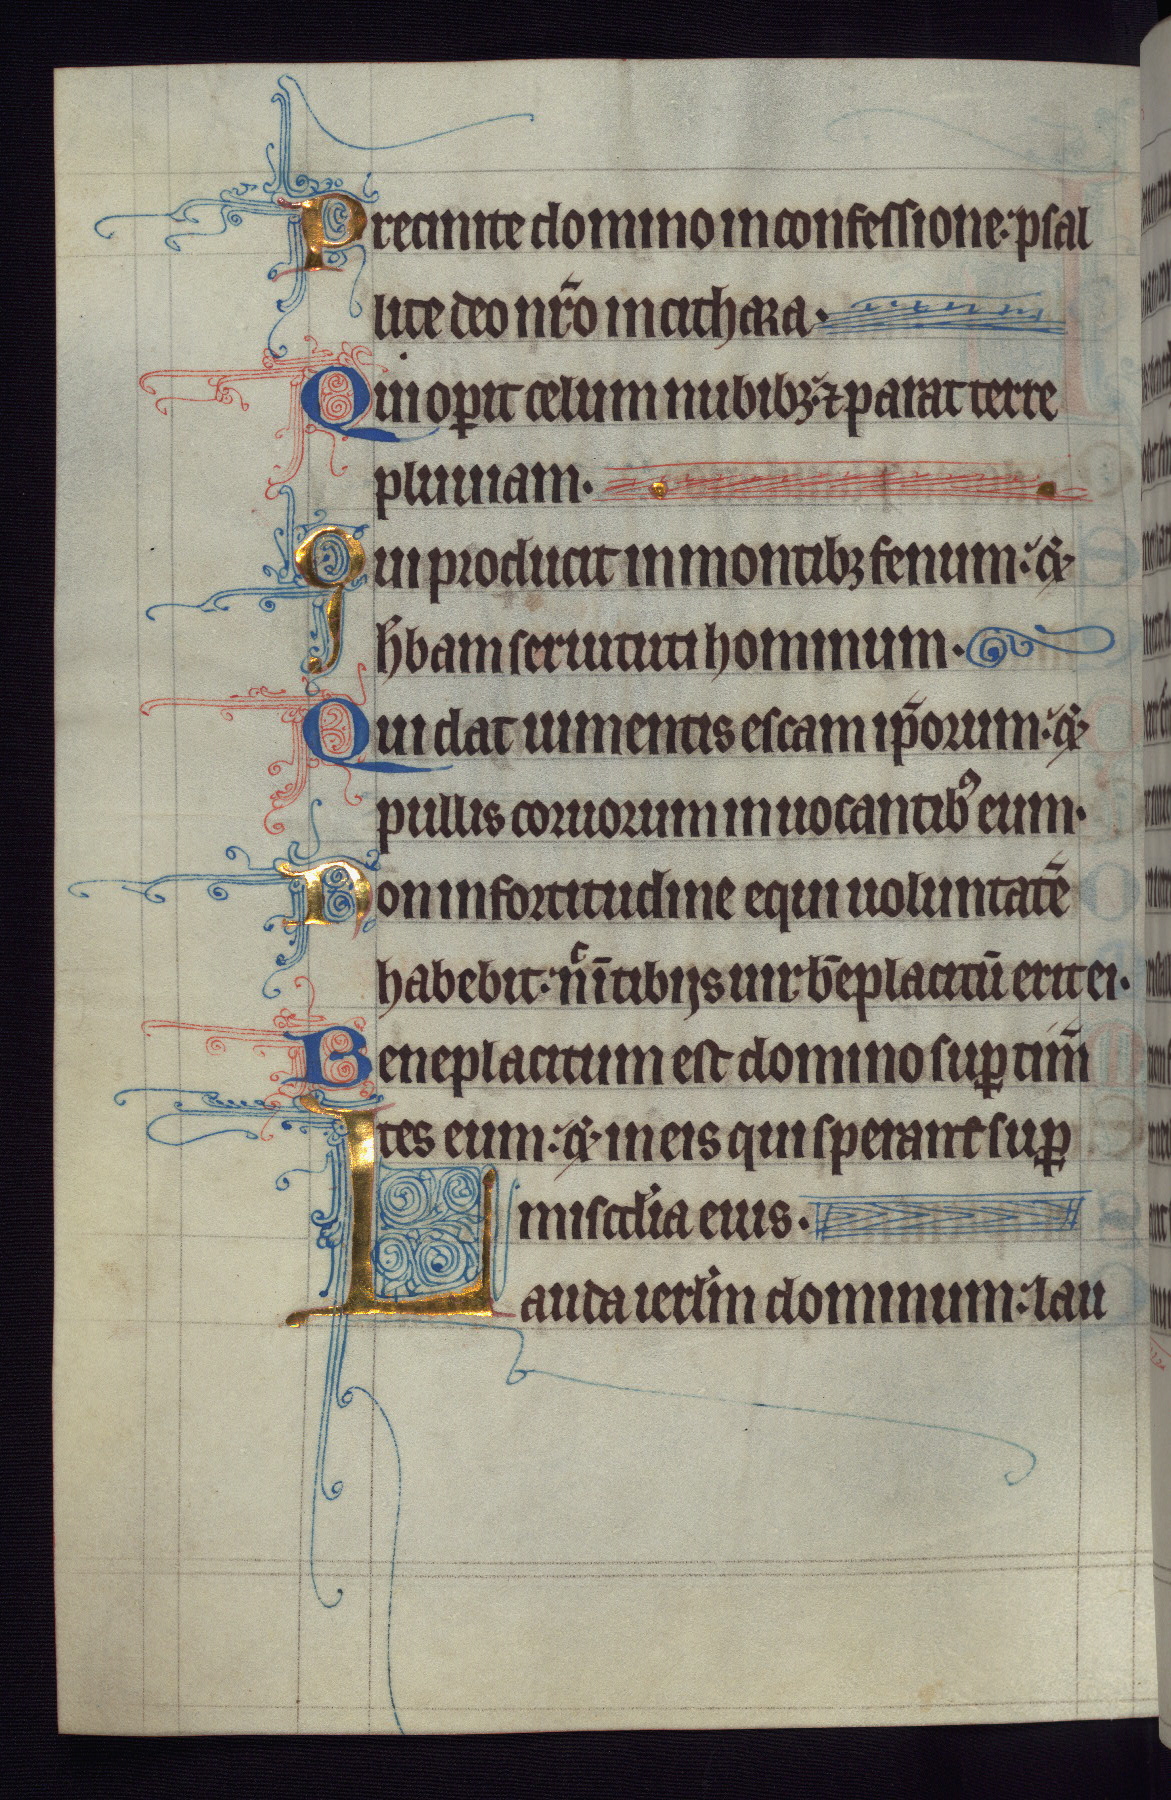 Precinite domino in confessione: psal
lite deo nr̃o in cithara.
Qui oꝑit celum nubibꝫ: ⁊ parat terre
pluuiam.
Qui producit in montibꝫ fenum: ⁊
h̃bam seruituti hominum.
Qui dat iumentis escam ip̃orum: ⁊
pullis coruorum inuocantibꝰ eum.
Non in fortitudine equi uoluntatẽ
habebit: nͨ ĩ tibijs uiri b̃eplacitũ erit ei.
Beneplacitum est domino suꝑ tim̃
tes eum: ⁊ in eis qui sperant suꝑ
misc̃dia eius.
Lauda ierl̃m dominum: lau